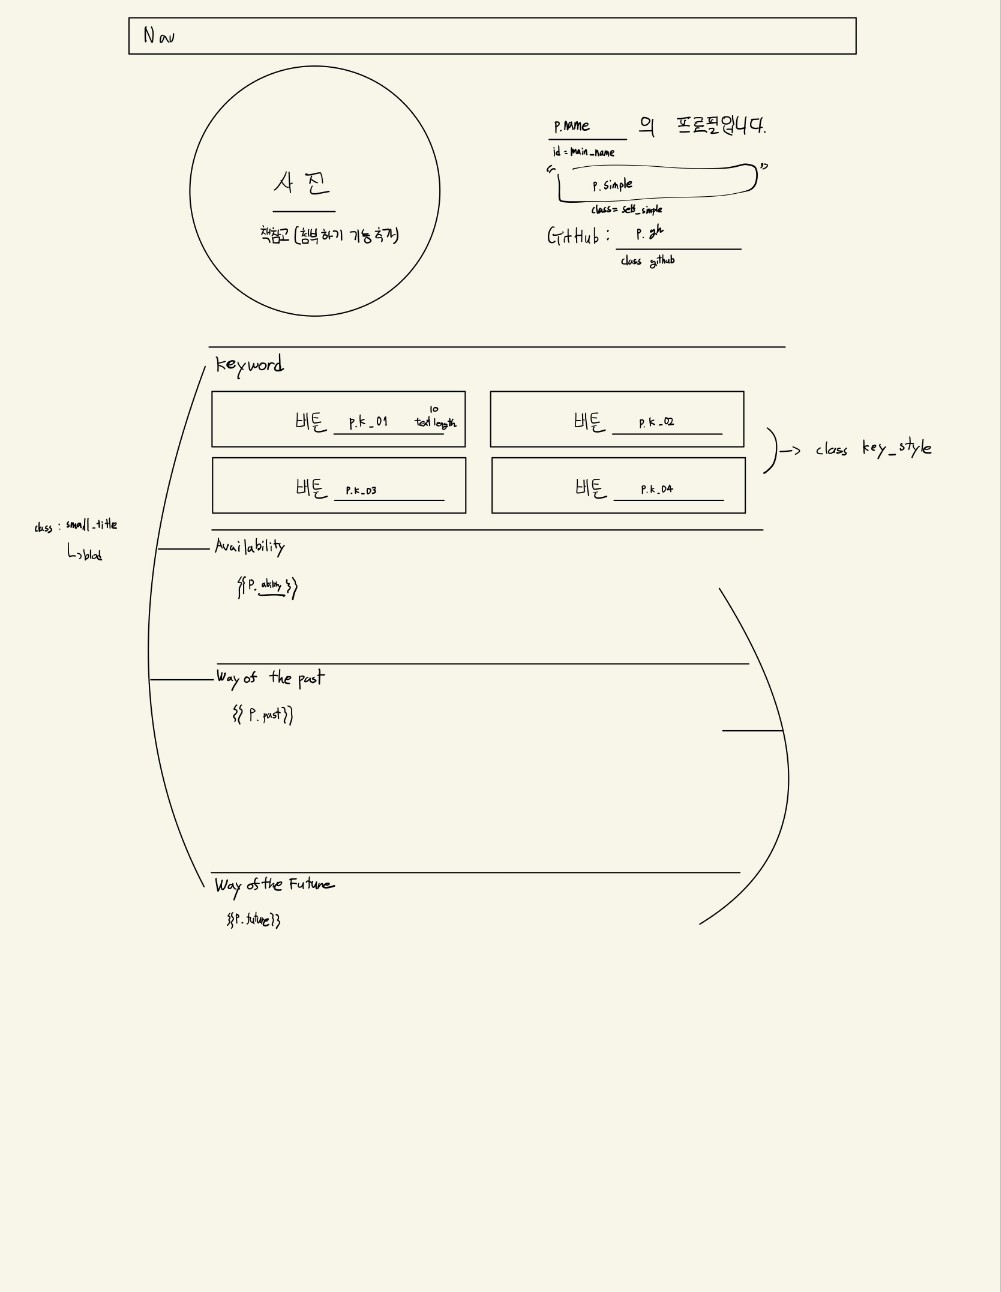 Nav
p.name 의 프로필입니다.
id = main_name
" p.simple "
class= self_simple
GitHub : p. gh
class github
사진
책참고 (첨부하기 기능 추가)
keyword
버튼 p.k_01 10
text length
버튼 p.k_02
버튼 p.k_03
버튼 p.k_04
→ class key_style
class : small_title
↳blod
Availability
{{P. ability}}
Way of the past
{{ P. past}}
Way of the Future
{{P. future}}